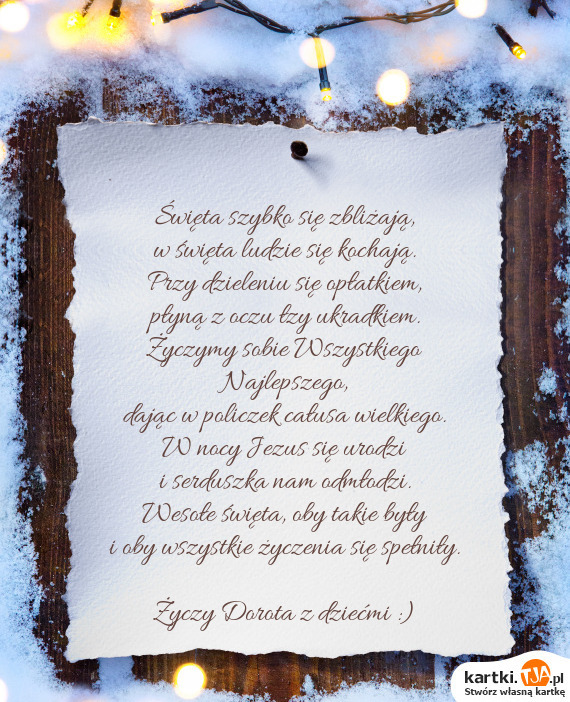 Święta szybko się zbliżają,
w święta ludzie się kochają.
Przy dzieleniu się opłatkiem,
płyną z oczu łzy ukradkiem.
Życzymy sobie Wszystkiego
Najlepszego,
dając w policzek całusa wielkiego.
W nocy Jezus się urodzi
i serduszka nam odmłodzi.
Wesołe święta, oby takie były
i oby wszystkie życzenia się spełniły.
Życzy Dorota z dziećmi :)
kartki.TJA.pl
Stwórz własną kartkę